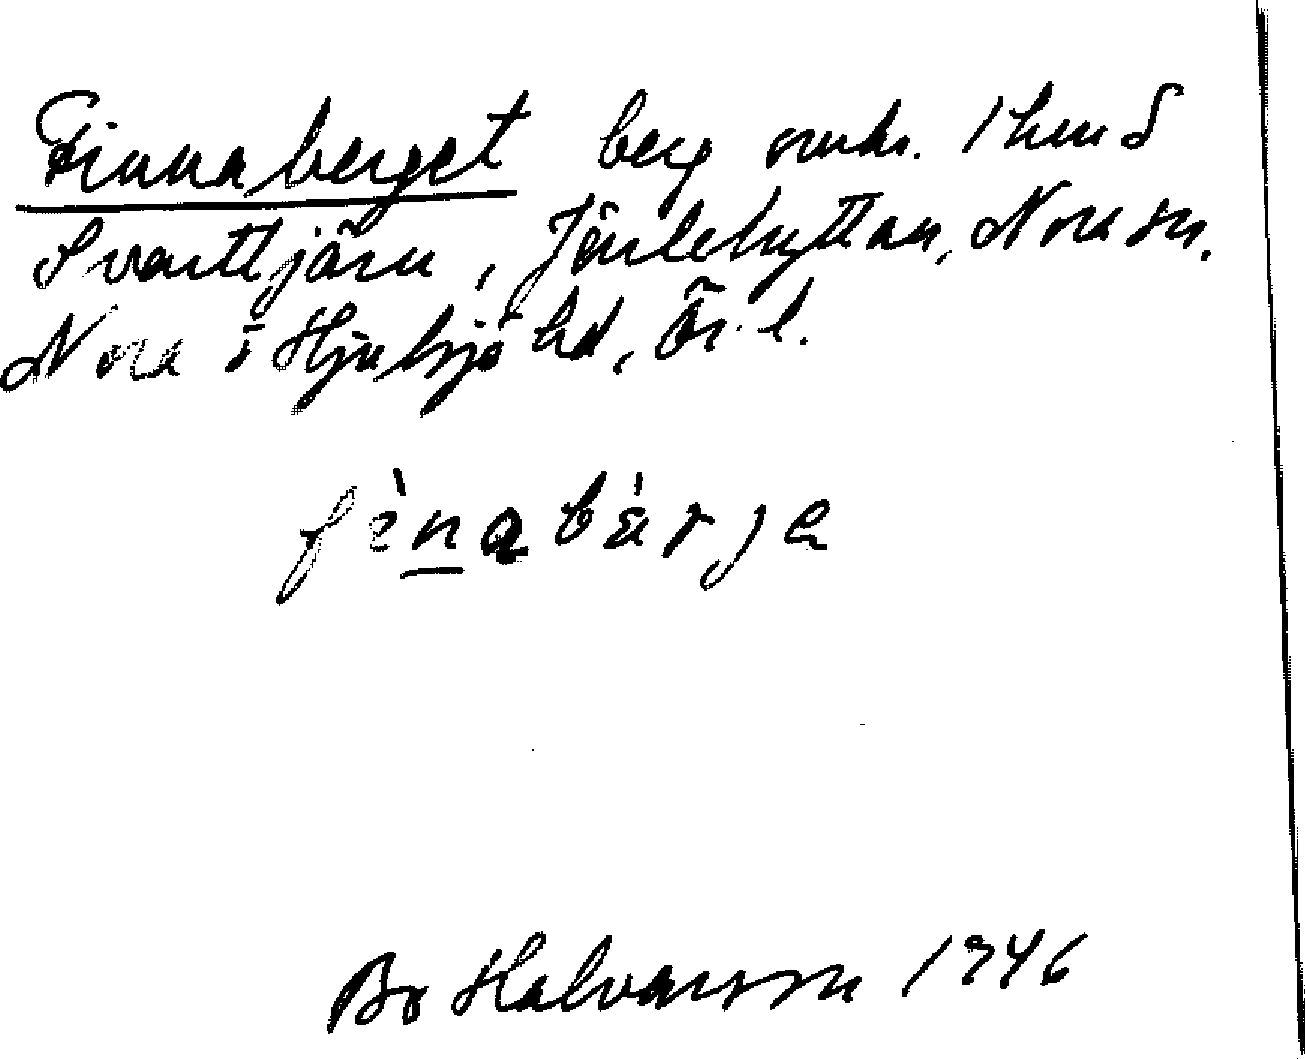 Finnaberget berg omkr. 1 km S
Svarttjärn, Järlehyttan, Nora sn.
Nora o Hjulsjö hd, Ör. l.
fìnabärja
Bo Halvarsson 1946